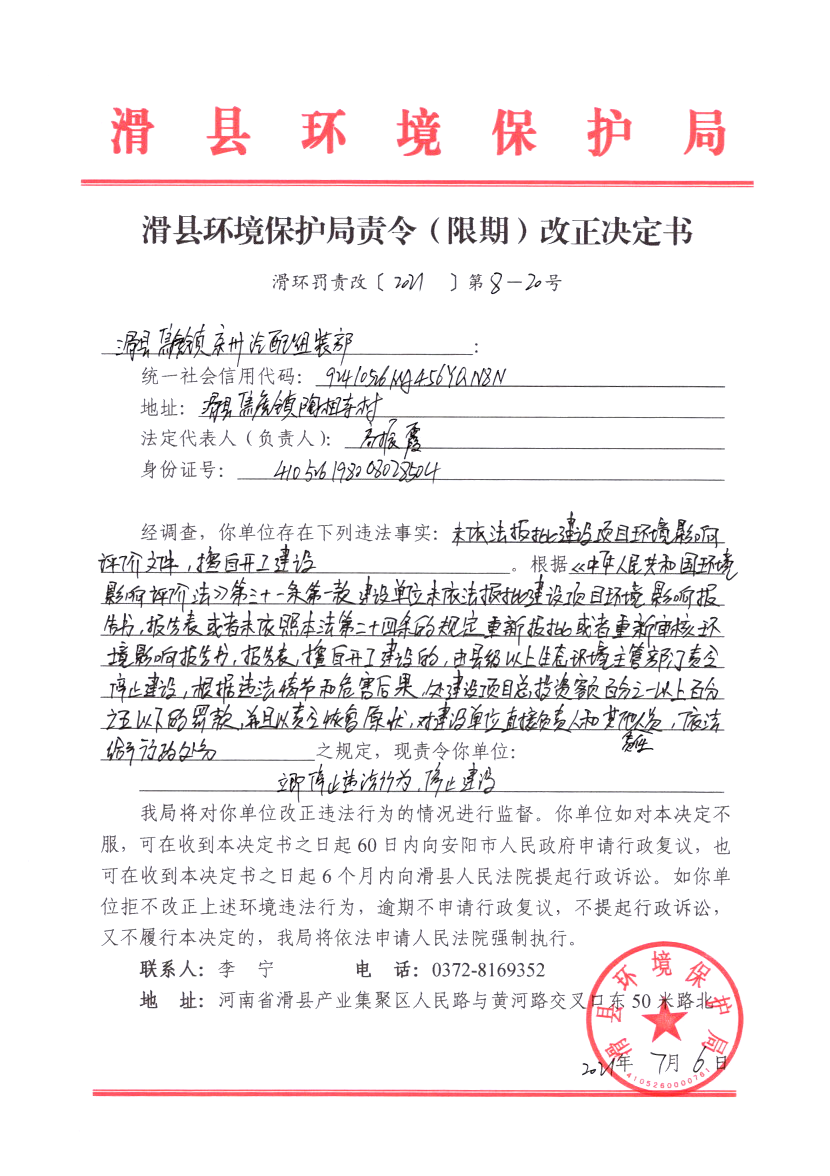 滑县环境保护局
滑县环境保护局责令（限期）改正决定书
滑环罚责改〔2021 〕第8-20号
滑县焦虎镇京州汽配组装部：
统一社会信用代码：92410526MA456YQN8N
地址：滑县焦虎镇陶祖寺村
法定代表人（负责人）：高振霞
身份证号：410526198203028504
经调查，你单位存在下列违法事实：未依法报批建设项目环境影响
评价文件，擅自开工建设。根据《中华人民共和国环境
影响评价法》第三十一条第一款 建设单位未依法报批建设项目环境影响报
告书，报告表或者未依照本法第二十四条的规定重新报批或者重新审核环
境影响报告书，报告表，擅自开工建设的，由县级以上生态环境主管部门责令
停止建设，根据违法情节和危害后果，处建设项目总投资额百分之一以上百分
之五以下的罚款，并且以责令恢复原状，对建设单位直接负责人和其他人员，依法
责任
给予行政处分之规定，现责令你单位：
立即停止违法行为，停止建设
我局将对你单位改正违法行为的情况进行监督。你单位如对本决定不
服，可在收到本决定书之日起60日内向安阳市人民政府申请行政复议，也
可在收到本决定书之日起6个月内向滑县人民法院提起行政诉讼。如你单
位拒不改正上述环境违法行为，逾期不申请行政复议，不提起行政诉讼，
又不履行本决定的，我局将依法申请人民法院强制执行。
联系人：李 宁 电 话：0372-8169352
地 址：河南省滑县产业集聚区人民路与黄河路交叉口东50米路北
2021年7月6日
滑县环境保护局
4105260000781